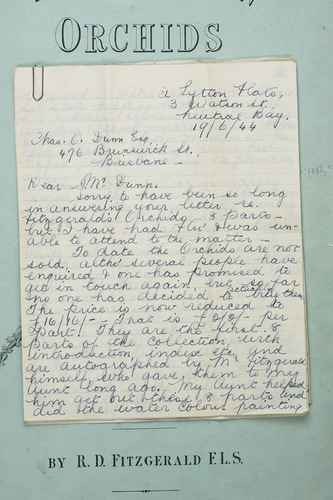 ORCHIDS
2 Lytton Flats,
3 Watson St.,
Neutral Bay.
19/6/44
Chas. O. Dunn Esq,
476 Brunswick St.,
Brisbane -
Dear Mr. Dunn.
Sorry to have been so long
in answering your letter re.
Fitzgerald's Orchids, 8 parts -
but I have had 'Flu' & was un-
able to attend to the matter -
To date the Orchids are not
sold, altho' several people have
enquired & one has promised to
get in touch again, but so far
no one has decided to actually buy them
The price is now reduced to
£16/16/- That is £2/2/- per
Part! They are the first 8
parts of the collection, with
introduction, index etc. and
are autographed by Mr Fitzgerald
himself who gave them to my
Aunt long ago. My Aunt helped
him get out these 8 parts and
did the water colour painting
BY R. D. FITZGERALD F.L.S.